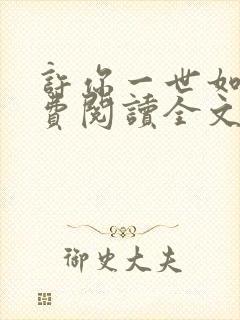 許你一世如
費閱讀全文
御史大夫